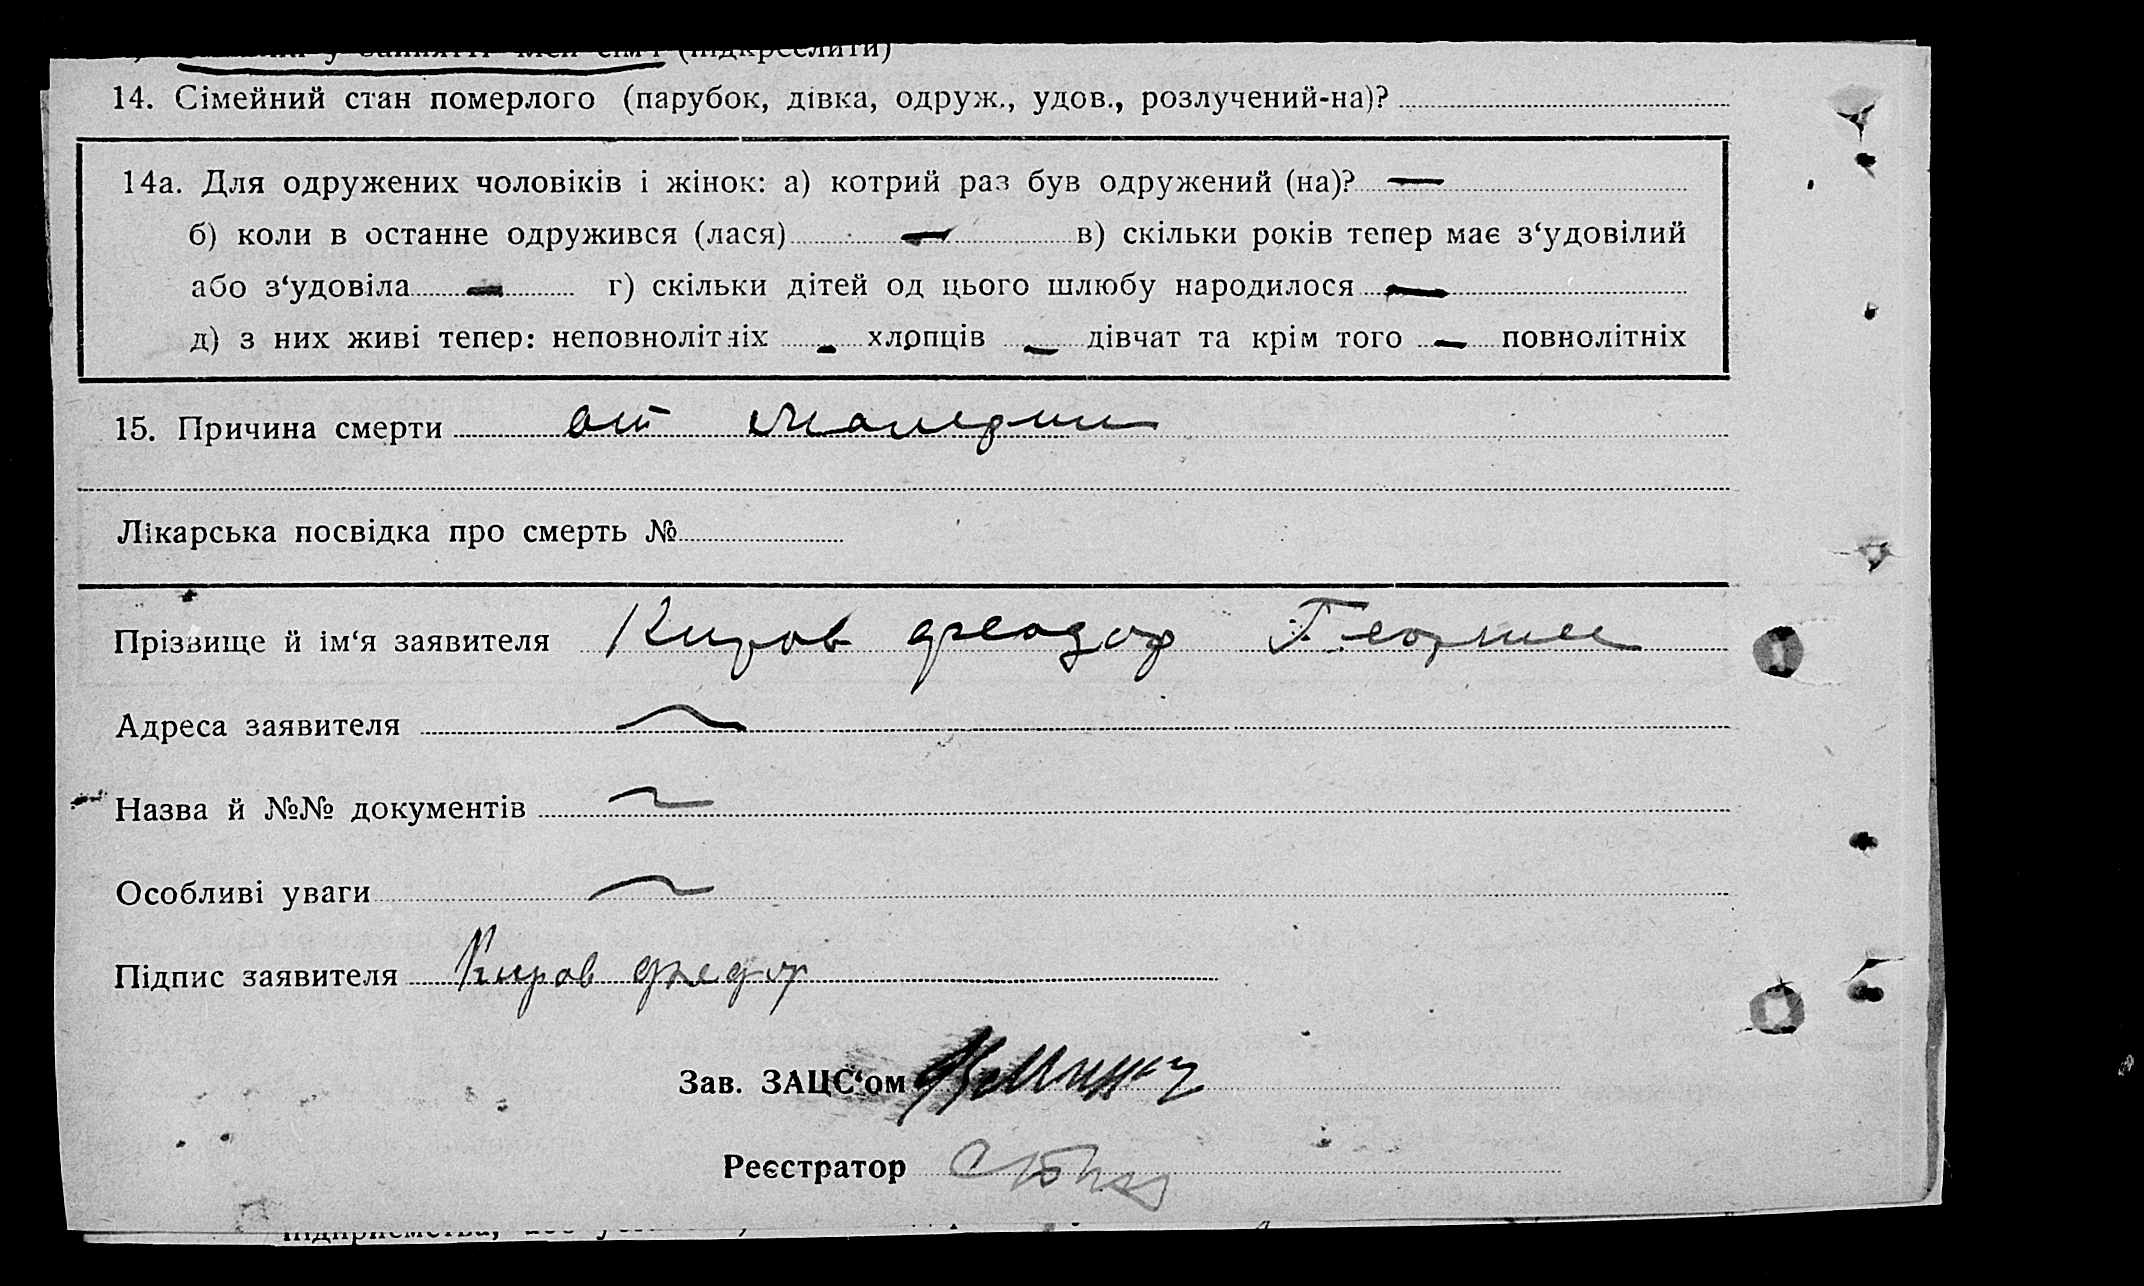 (підкреслити)
14. Сімейний стан померлого (парубок, дівка, одруж., удов., розлучений-на)?
14а. Для одружених чоловіків і жінок: а) котрий раз був одружений (на)? —
б) коли в останне одружився (лася) — в) скільки років тепер має з‘удовілий
або з‘удовіла — г) скільки дітей од цього шлюбу народилося —
д) з них живі тепер: неповнолітніх - хлопців - дівчат та крім того — повнолітніх
15. Причина смерти от
Лікарська посвідка про смерть №
Прізвище й ім‘я заявителя Киров Феодор Георгие
Адреса заявителя
Назва й №№ документів
Особливі уваги
Підпис заявителя Киров Федор
Зав. ЗАЦС‘ом
Реєстратор